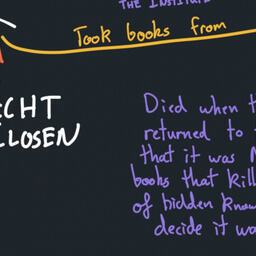 THE INSTITU
Took books from
ECHT
LOSEN
Died when t
returned to
that it was
books that kill
of hidden know
decide it wa